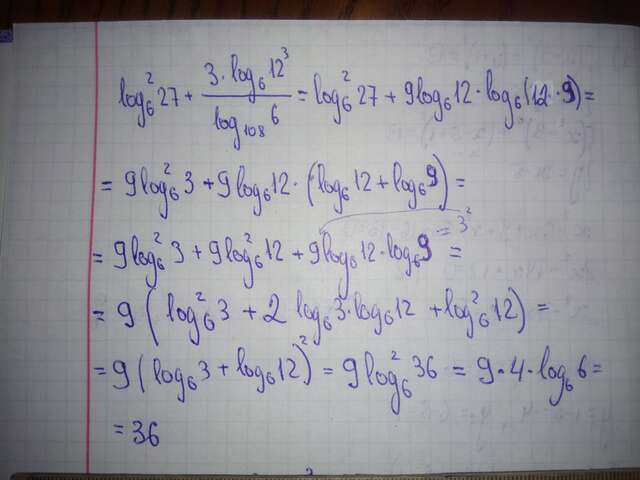 log₆²27 + (3·log₆12³)/(log₁₀₈6) = log₆²27 + 9log₆12·log₆(12·9) =
= 9log₆²3 + 9log₆12·(log₆12 + log₆9) =
= 9log₆²3 + 9log₆²12 + 9log₆12·log₆9 =
= 3²
= 9(log₆²3 + 2log₆3·log₆12 + log₆²12) =
= 9(log₆3 + log₆12)² = 9log₆²36 = 9·4·log₆6 =
= 36